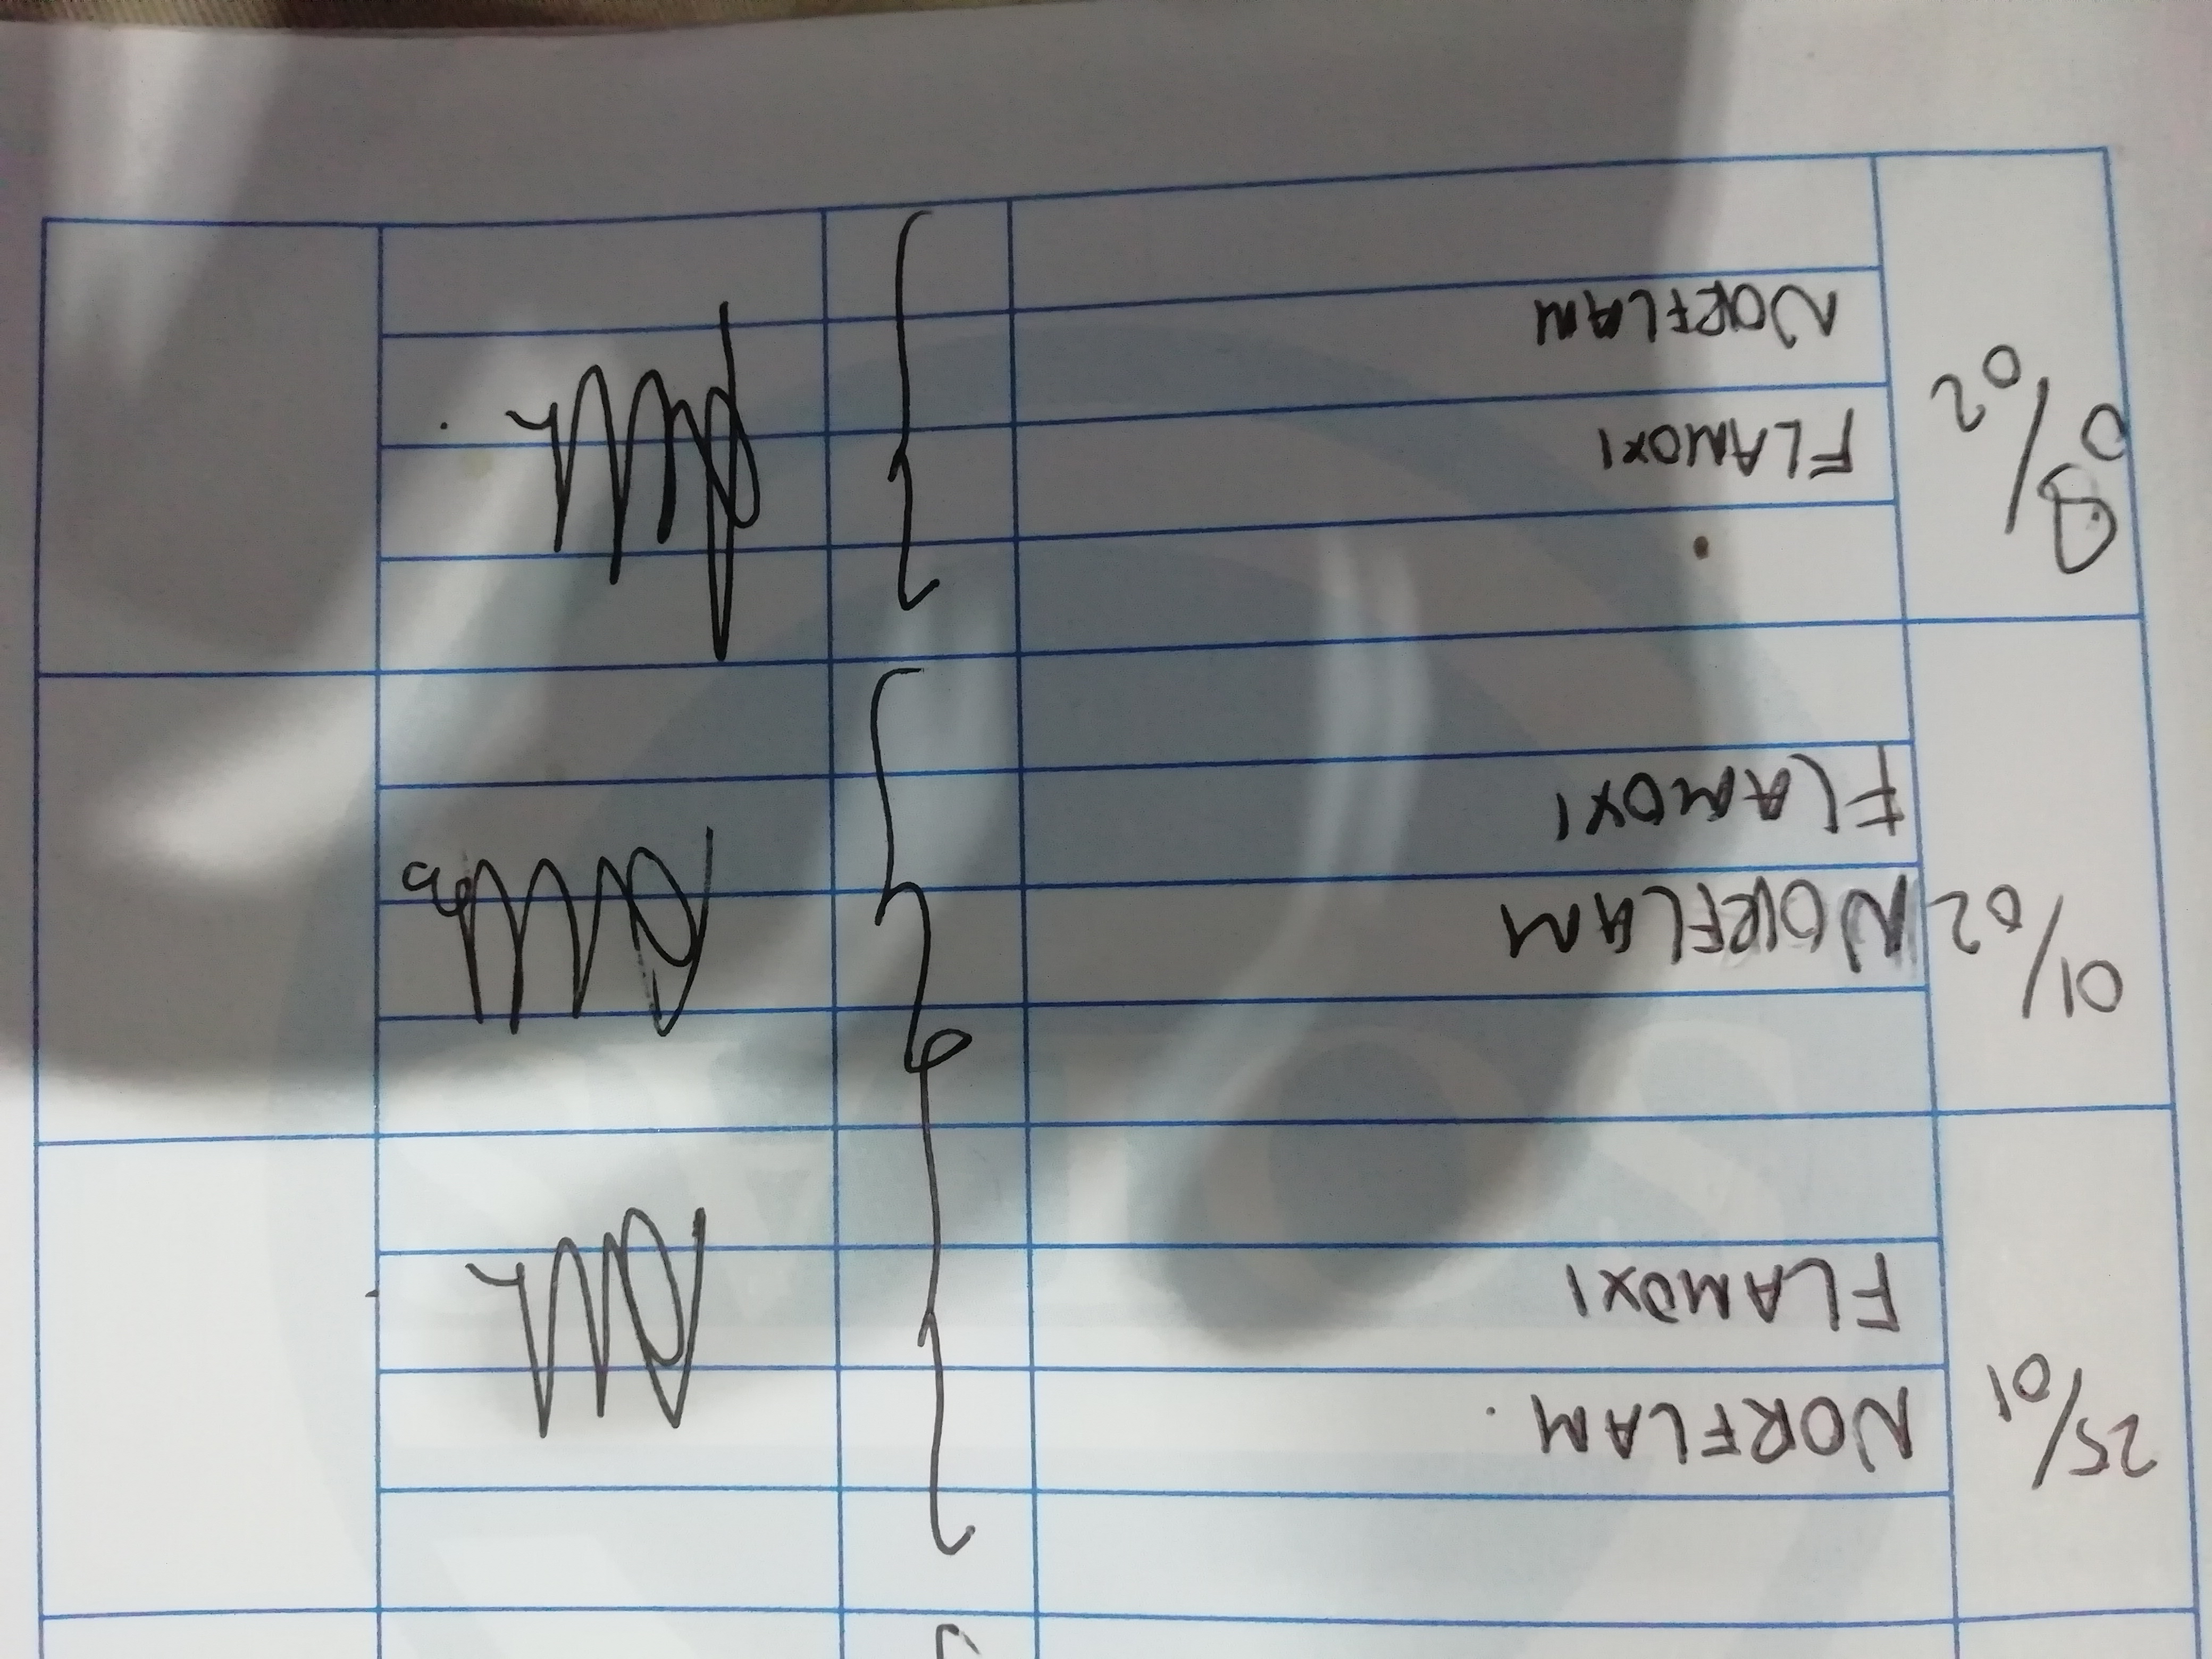 25/01
NORFLAM.
FLAMOXI
01/02
NORFLAM
FLAMOXI
08/02
FLAMOXI
NORFLAM